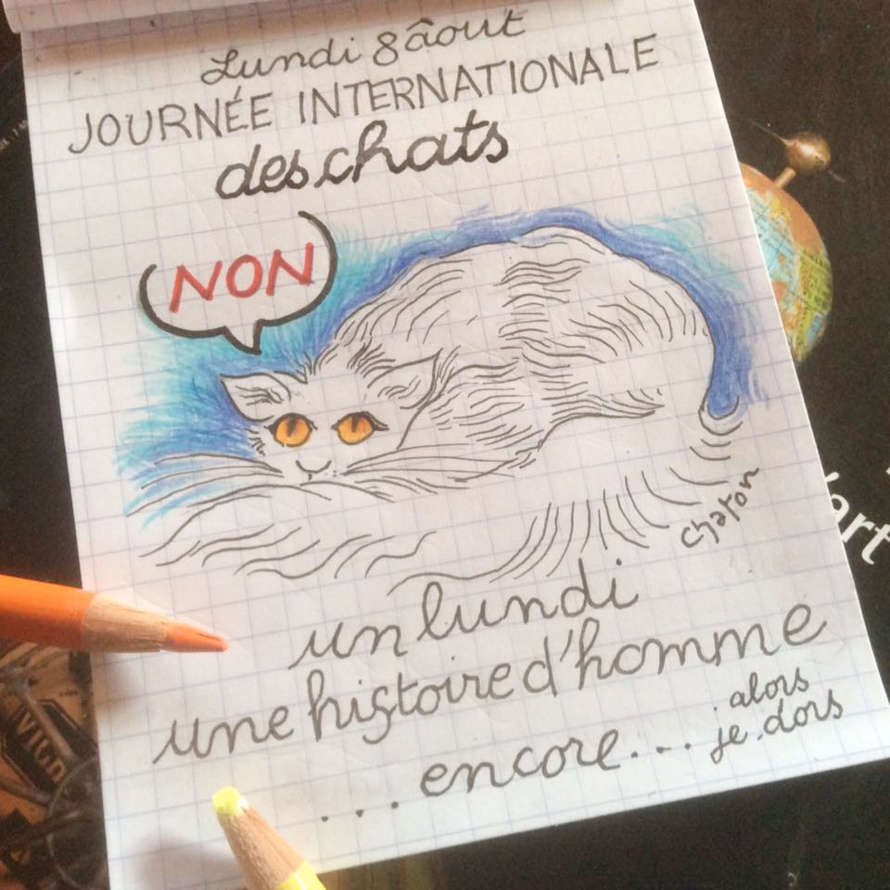 Lundi 8 âout
JOURNÉE INTERNATIONALE
des chats
NON
Chaton
un lundi
une histoire d'homme
... encore ... alors
je dors
art